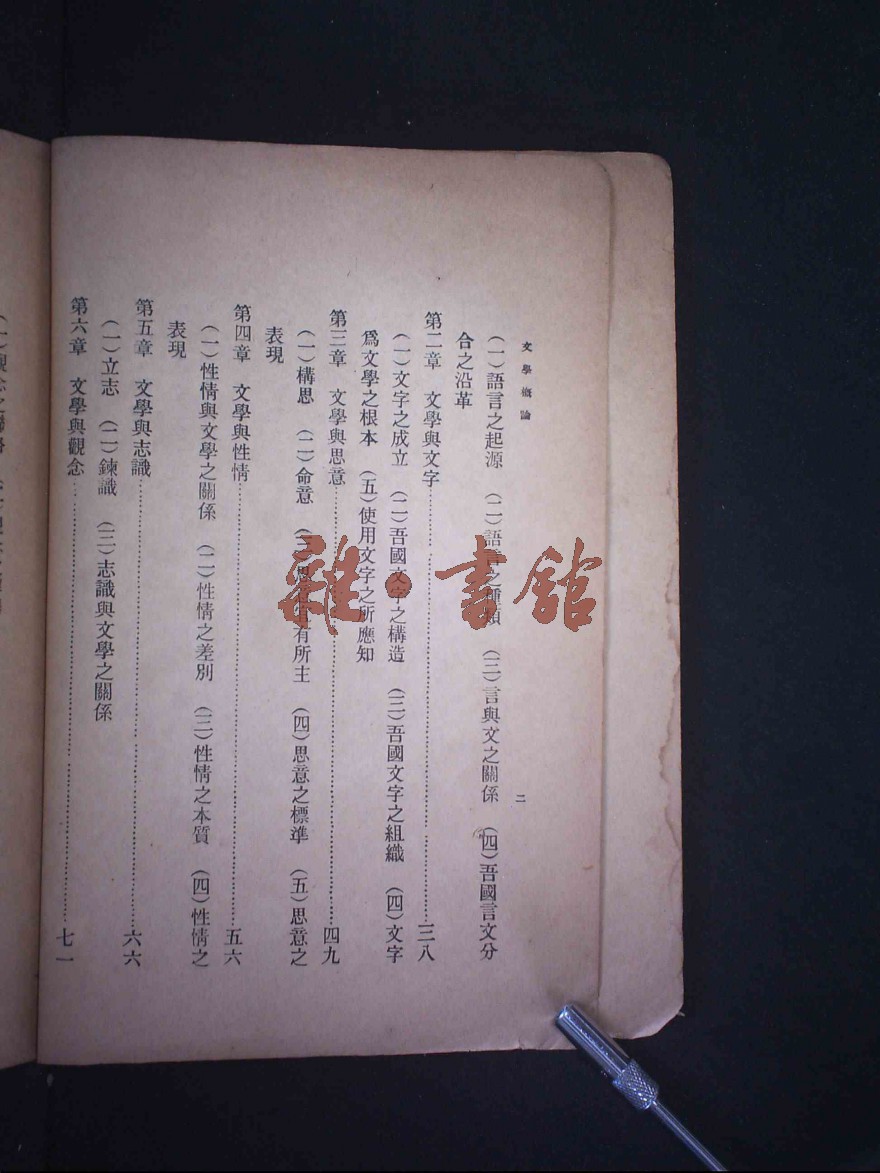 文學概論
二
(一)語言之起源 (二)語言之種類 (三)言與文之關係 (四)吾國言文分
合之沿革
第二章 文學與文字……三八
(一)文字之成立 (二)吾國文字之構造 (三)吾國文字之組織 (四)文字
爲文學之根本 (五)使用文字之所應知
第三章 文學與思意……四九
(一)構思 (二)命意 (三)思意宜有所主 (四)思意之標準 (五)思意之
表現
第四章 文學與性情……五六
(一)性情與文學之關係 (二)性情之差別 (三)性情之本質 (四)性情之
表現
第五章 文學與志識……六六
(一)立志 (二)鍊識 (三)志識與文學之關係
第六章 文學與觀念……七一
雜·書館